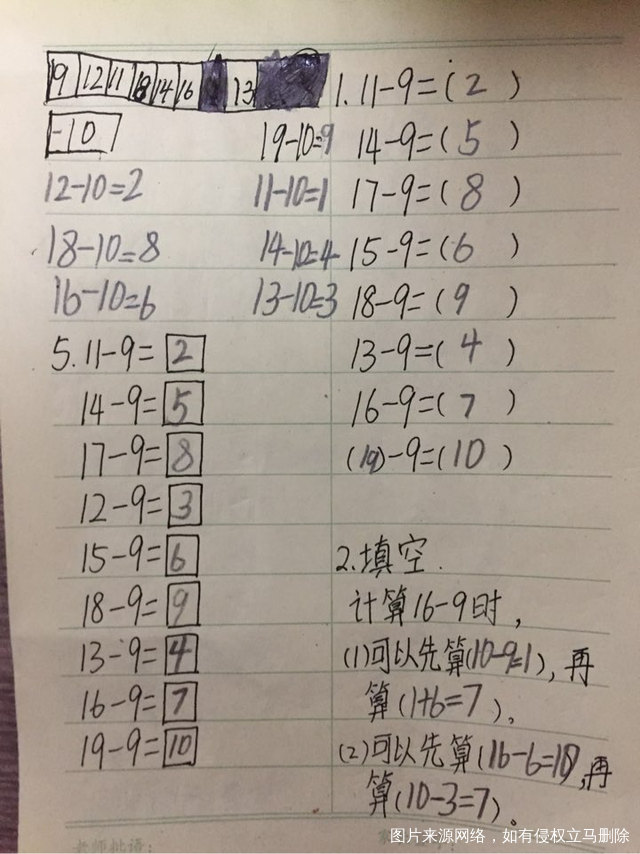 19 12 11 18 14 16 13
-10
19-10=9
12-10=2 11-10=1
18-10=8 14-10=4
16-10=6 13-10=3
5. 11-9=2
14-9=5
17-9=8
12-9=3
15-9=6
18-9=9
13-9=4
16-9=7
19-9=10
1. 11-9=(2)
14-9=(5)
17-9=(8)
15-9=(6)
18-9=(9)
13-9=(4)
16-9=(7)
(19)-9=(10)
2.填空.
计算16-9时,
(1)可以先算(10-9=1),再
算(1+6=7)。
(2)可以先算(16-6=10),再
算(10-3=7)。
老师批语:
图片来源网络，如有侵权立马删除